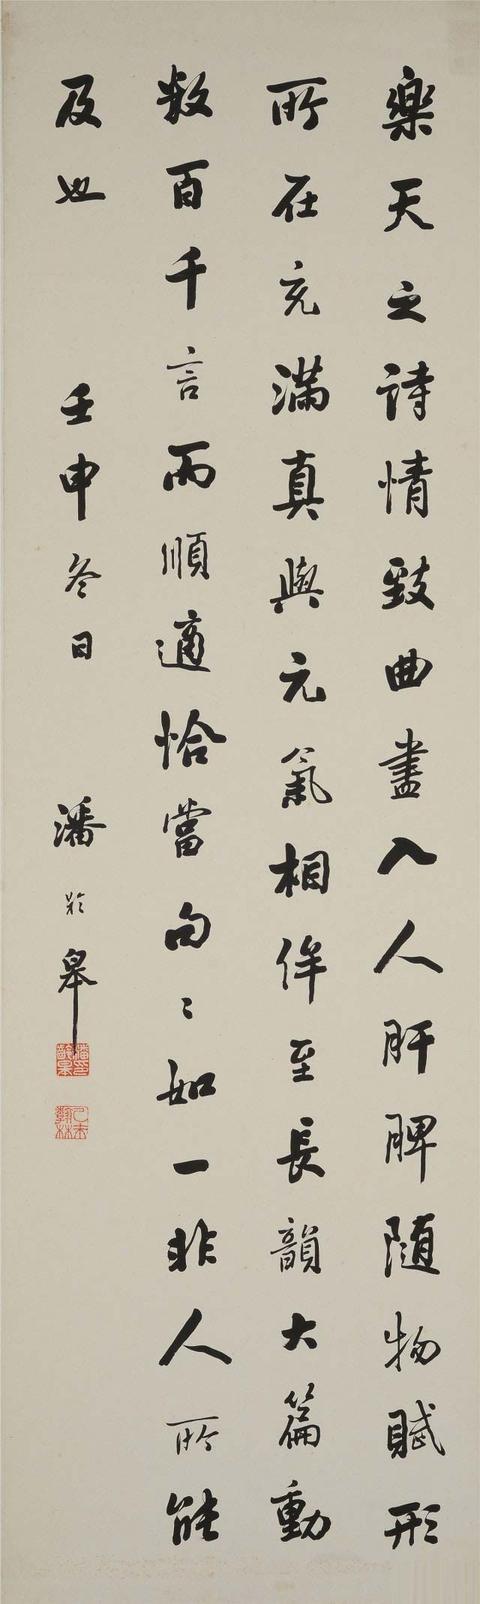 樂天之詩情致曲盡入人肝脾隨物賦形
所在充滿真與元氣相侔至長韻大篇動
數百千言而順適恰當句〻如一非人所能
及也
壬申冬日 潘齡皋
潘印齡皋
乙未翰林